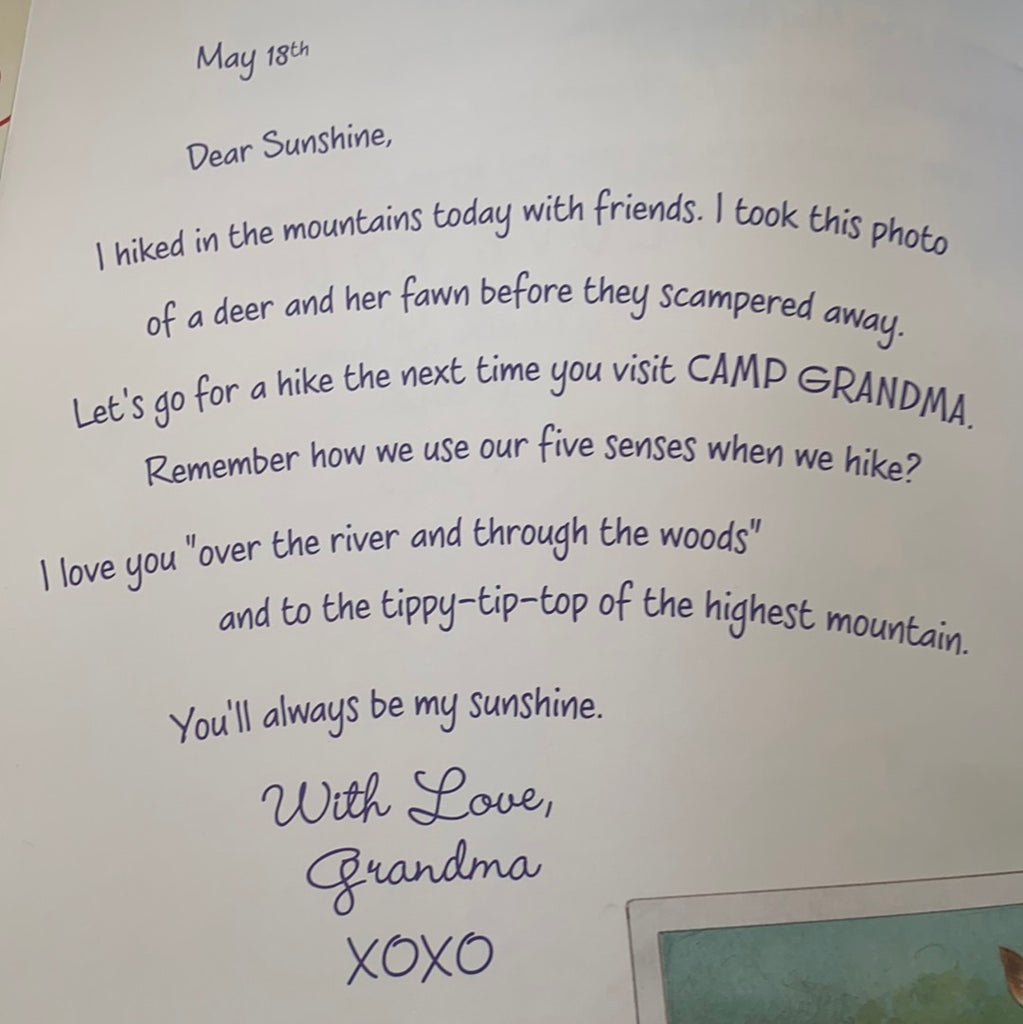 May 18th
Dear Sunshine,
I hiked in the mountains today with friends. I took this photo
of a deer and her fawn before they scampered away.
Let's go for a hike the next time you visit CAMP GRANDMA.
Remember how we use our five senses when we hike?
I love you "over the river and through the woods"
and to the tippy-tip-top of the highest mountain.
You'll always be my sunshine.
With Love,
Grandma
XOXO